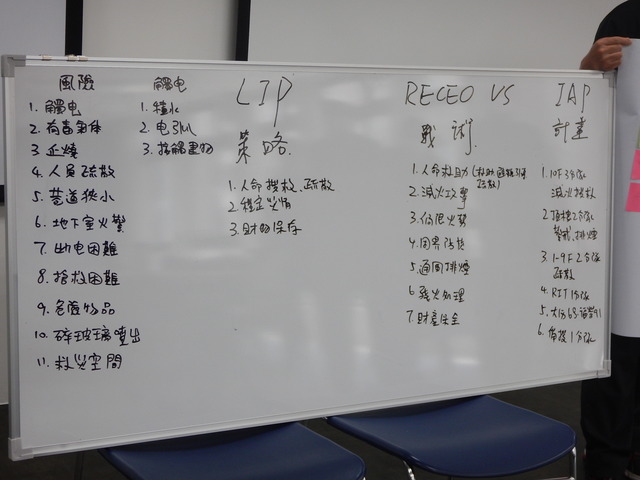 風險
1. 觸电
2. 有毒氣体
3. 正燒
4. 人員疏散
5. 巷道狹小
6. 地下室火警
7. 助电困難
8. 搶救困難
9. 危險物品
10. 碎玻璃噴出
11. 救災空間
觸电
1. 積水
2. 电引火
3. 接觸畫物
LIP
策略
1. 人命搜救、疏散
2. 穩定火情
3. 財物保存
RECEO VS
戰術
1. 人命救助
2. 滅火攻擊
3. 侷限火勢
4. 周界防護
5. 通風排煙
6. 殘火処理
7. 財產保全
IAP
計畫
1. 10F 3分隊
滅火搜救
2. 頂樓2分隊
警戒、排煙
3. 1-9F 2分隊
疏散
4. RIT 1分隊
6. 備援1分隊